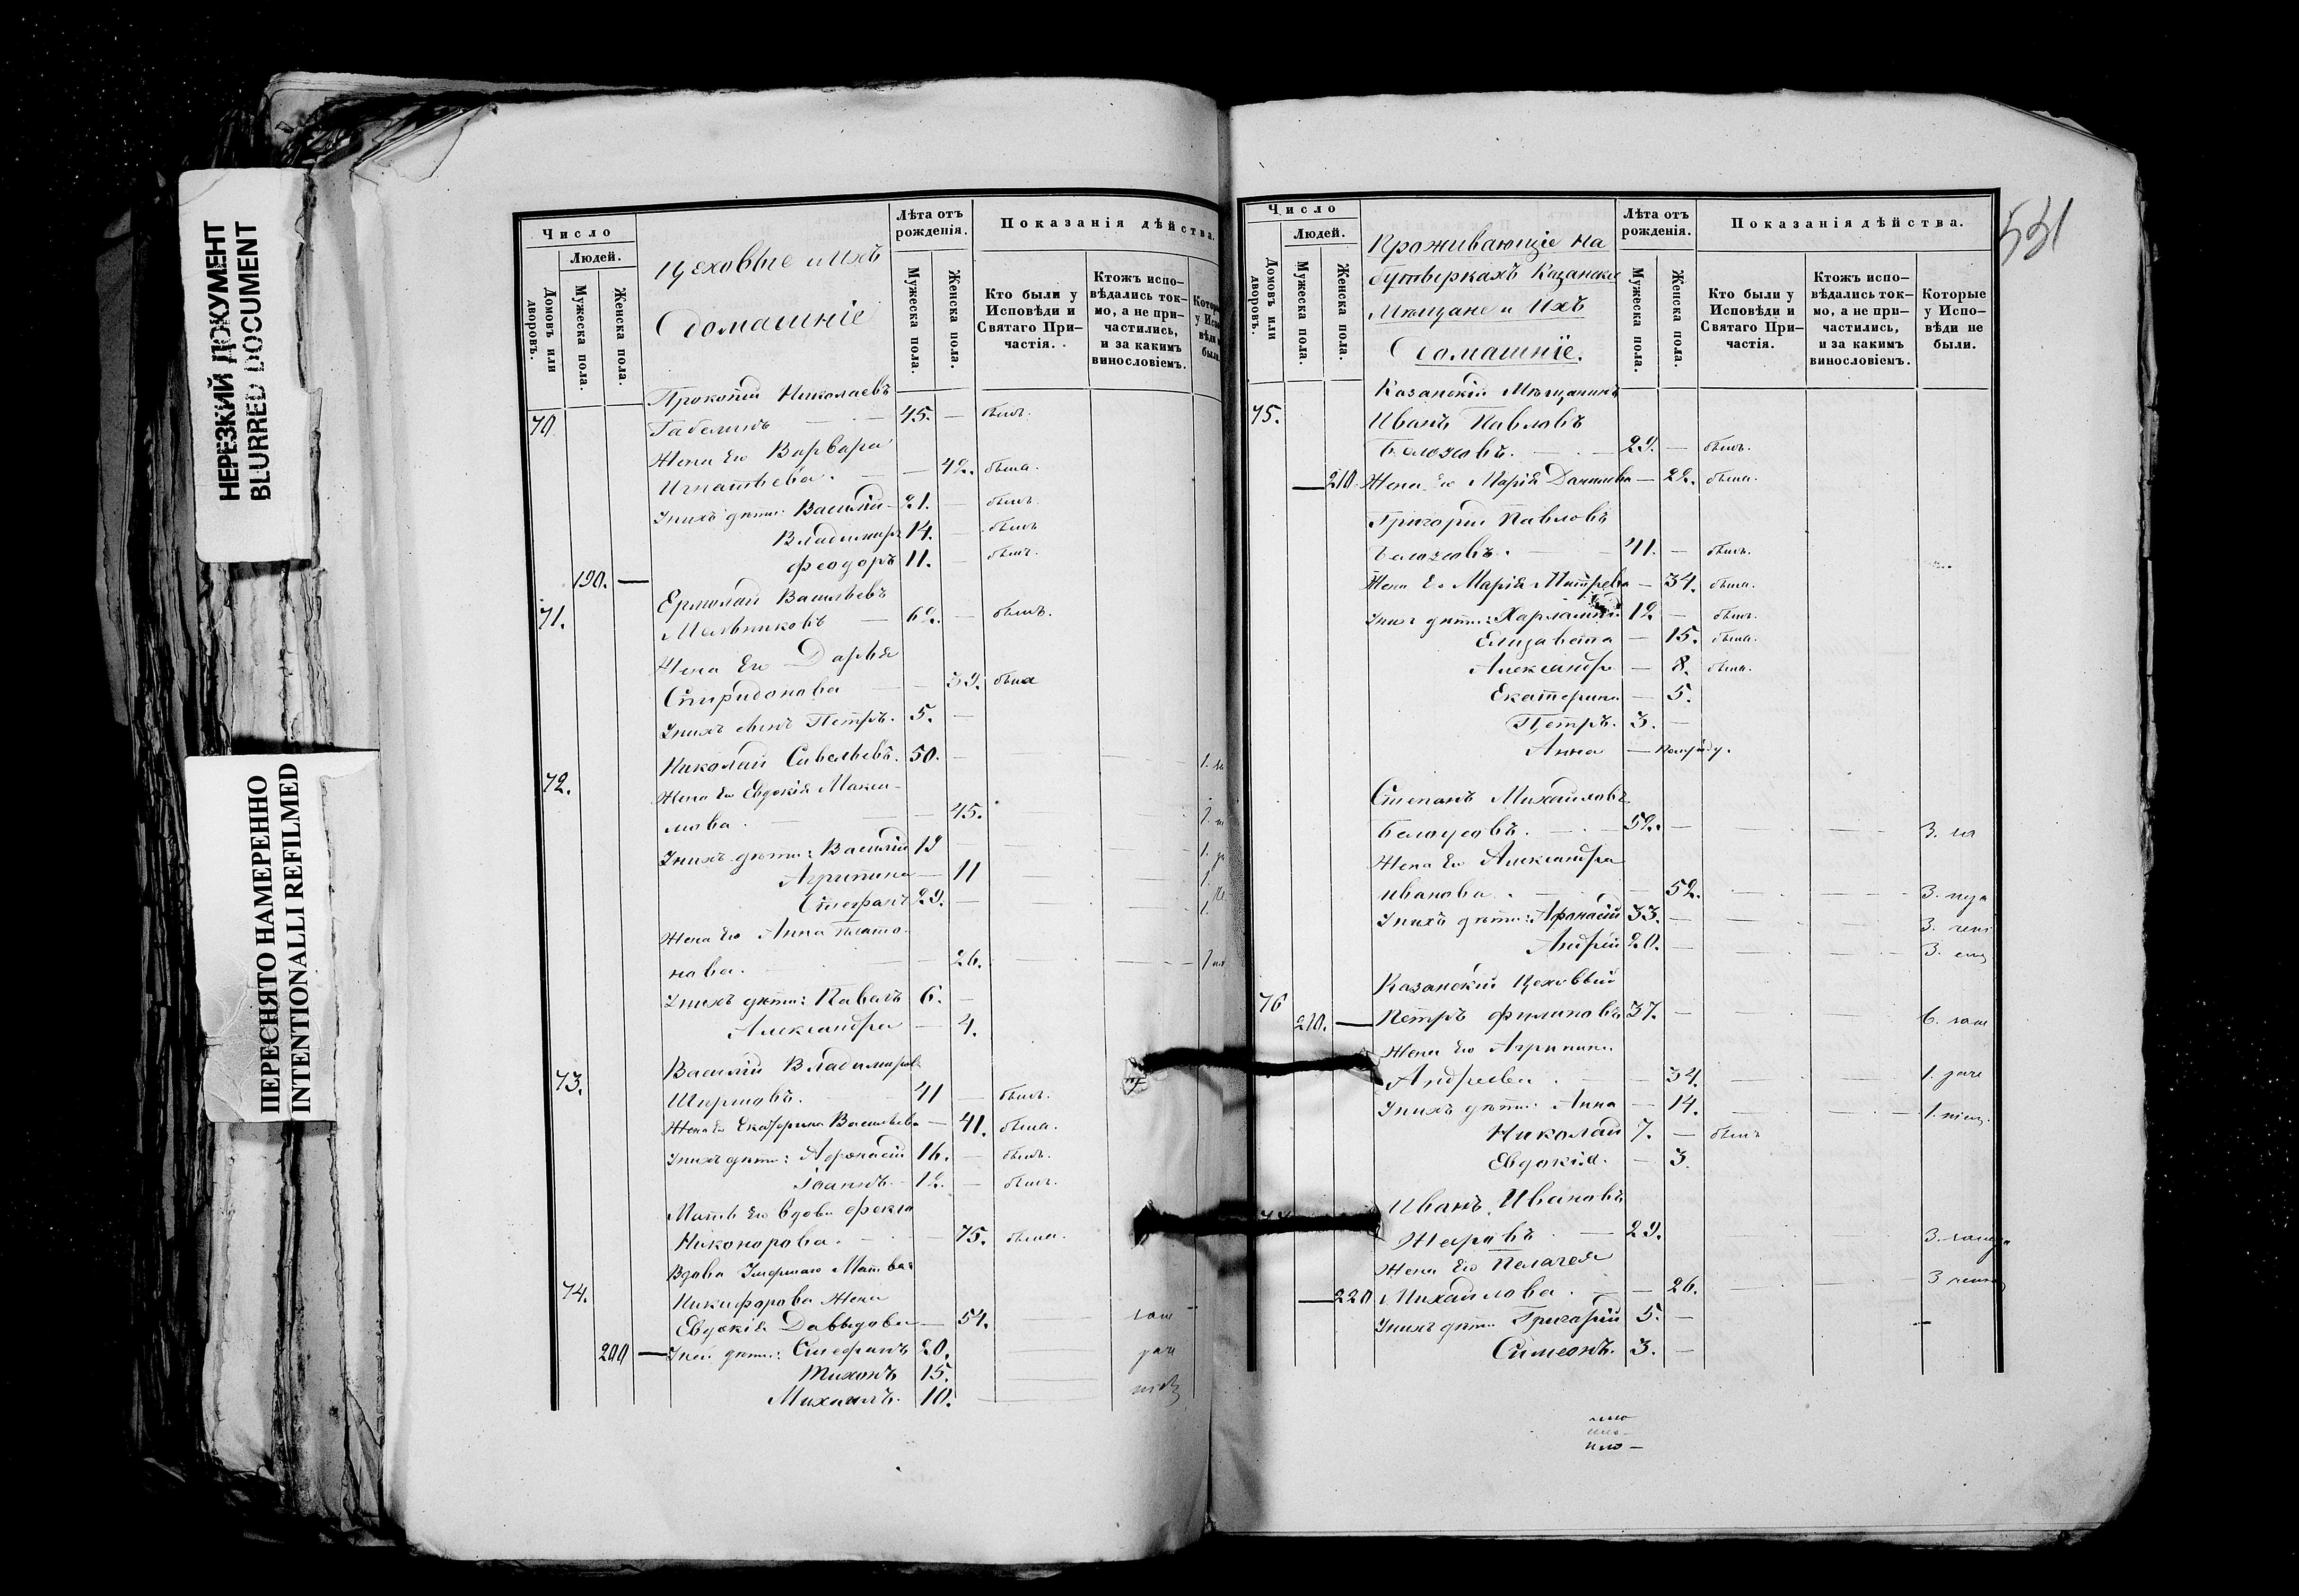 НЕРЕЗКИЙ ДОКУМЕНТ
BLURRED DOCUMENT
ПЕРЕСНЯТО НАМЕРЕННО
INTENTIONALLI REFILMED
Число
Людей.
Домовъ или дворовъ.
Мужеска пола.
Женска пола.
Цеховые и Ихъ
Домашніе
Лѣта отъ рожденія.
Мужеска пола.
Женска пола.
Показанія дѣйства.
Кто были у Исповѣди и Святаго Причастія.
Ктожъ исповѣдались токмо, а не причастились, и за какимъ винословіемъ.
Прокопій Николаевъ
70. 45. — былъ.
Жена Его Варвара
Игнатьева. — 42. была.
У нихъ дѣти: Василій 21. — былъ.
Владимиръ 14. — былъ
Феодоръ 11. — былъ.
190. —
Ермолай Васильевъ
71. Мельниковъ — 62. — былъ.
Жена Его Дарья
Спиридонова — 39. была
У нихъ сынъ Петръ. 5. —
Николай Савельевъ. 50. —
72. Жена Его Евдокія Макси-
мова. — 45.
У нихъ дѣти: Василій 19
Агрипина — 11
Стефанъ 29. —
Жена Его Анна Плато-
нова. — 26.
У нихъ дѣти: Павелъ 6. —
Александра — 4.
Василій Владимировъ
73. 41 — былъ.
Жена Его Екатерина Васильева — 41. была.
У нихъ дѣти: Афонасій 16. — былъ.
Іоаннъ — 12. — былъ.
Мать Его вдова Фекла
Никонорова. — 75. была.
Вдова Умершаго Матвея
74. Никифорова Жена
Евдокія Давыдова — 54.
200 — У ней дѣти: Стефанъ 20.
Тихонъ 15.
Михаилъ. 10.
531
Число
Людей.
Домовъ или дворовъ.
Мужеска пола.
Женска пола.
Проживающіе на
Бутыркахъ Казанскіе
Мѣщане и Ихъ
Домашніе.
Лѣта отъ рожденія.
Мужеска пола.
Женска пола.
Показанія дѣйства.
Кто были у Исповѣди и Святаго Причастія.
Ктожъ исповѣдались токмо, а не причастились, и за какимъ винословіемъ.
Которые у Исповѣди не были.
Казанскій Мѣщанинъ
75. Иванъ Павловъ
Белоусовъ. — 29. — былъ.
— 210. Жена Его Марія Данилова — 22. была.
Григорій Павловъ
Белоусовъ. — 41. — былъ.
Жена Его Марія Дмитрева — 34. была.
У нихъ дѣти: Харлампій 12. — былъ.
Елизавета — 15. была.
Александра — 8. была.
Екатерина — 5.
Петръ. 3. —
Анна —
Степанъ Михайловъ
Белоусовъ. — 52. —
Жена Его Александра
Иванова. — 52.
У нихъ дѣти: Афонасій 33. —
Андрей 20. —
Казанскій Цеховый
76
210. — Петръ Филиповъ 37. —
Жена Его Агрипина
Андреева. — 34.
У нихъ дѣти: Анна — 14.
Николай 7. — былъ
Евдокія. — 3.
Иванъ Ивановъ
Жаровъ — 29.
Жена Его Пелагея
— 220 Михайлова. — 26.
У нихъ дѣти Григорій 5. —
Симеонъ. 3. —